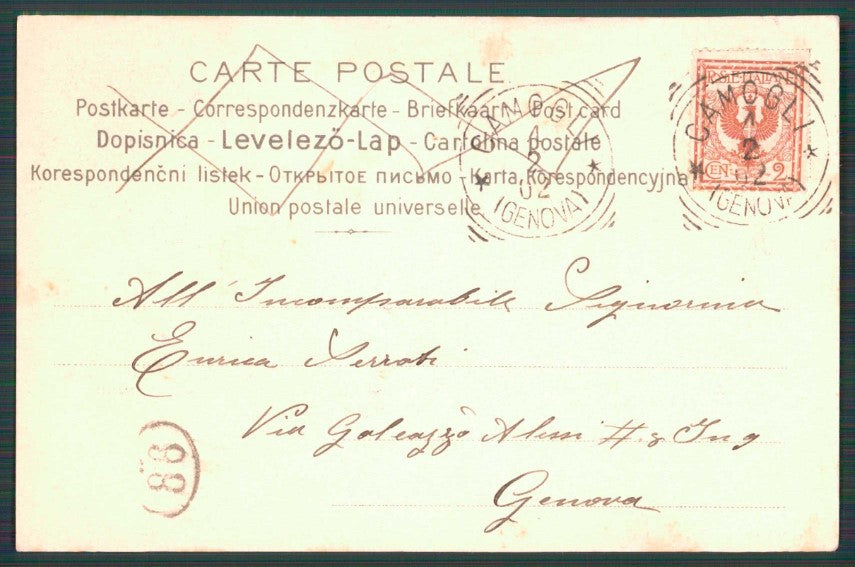 CARTE POSTALE
Postkarte - Correspondenzkarte - Briefkaart - Post card
Dopisnica - Levelező-Lap - Cartolina postale
Korespondenční listek - Открытое письмо - Karta Korespondencyjna
Union postale universelle
CAMOGLI
1
2
02
(GENOVA)
CAMOGLI
1
2
02
(GENOVA)
POSTE ITALIANE
CENT. 2
All' Incomparabile Signorina
Enrica
Via Galeazzo
Genova
88